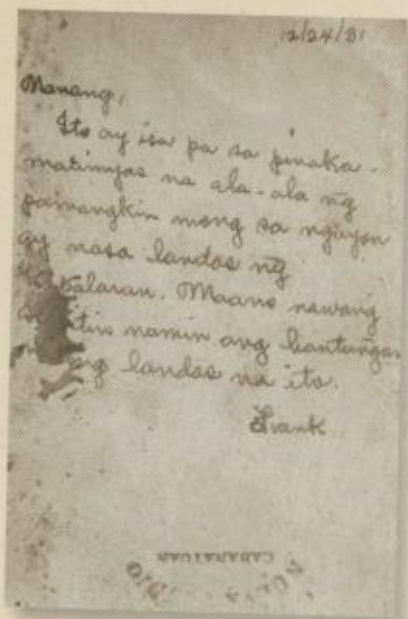 12/24/31
Manang,
Ito ay isa pa sa pinaka-
matimyas na ala-ala ng
pamangkin mong sa ngayon
ay nasa landas ng
palaran. Maano nawang
namin ang hantungan
ng landas na ito.
Frank
CABANATUAN